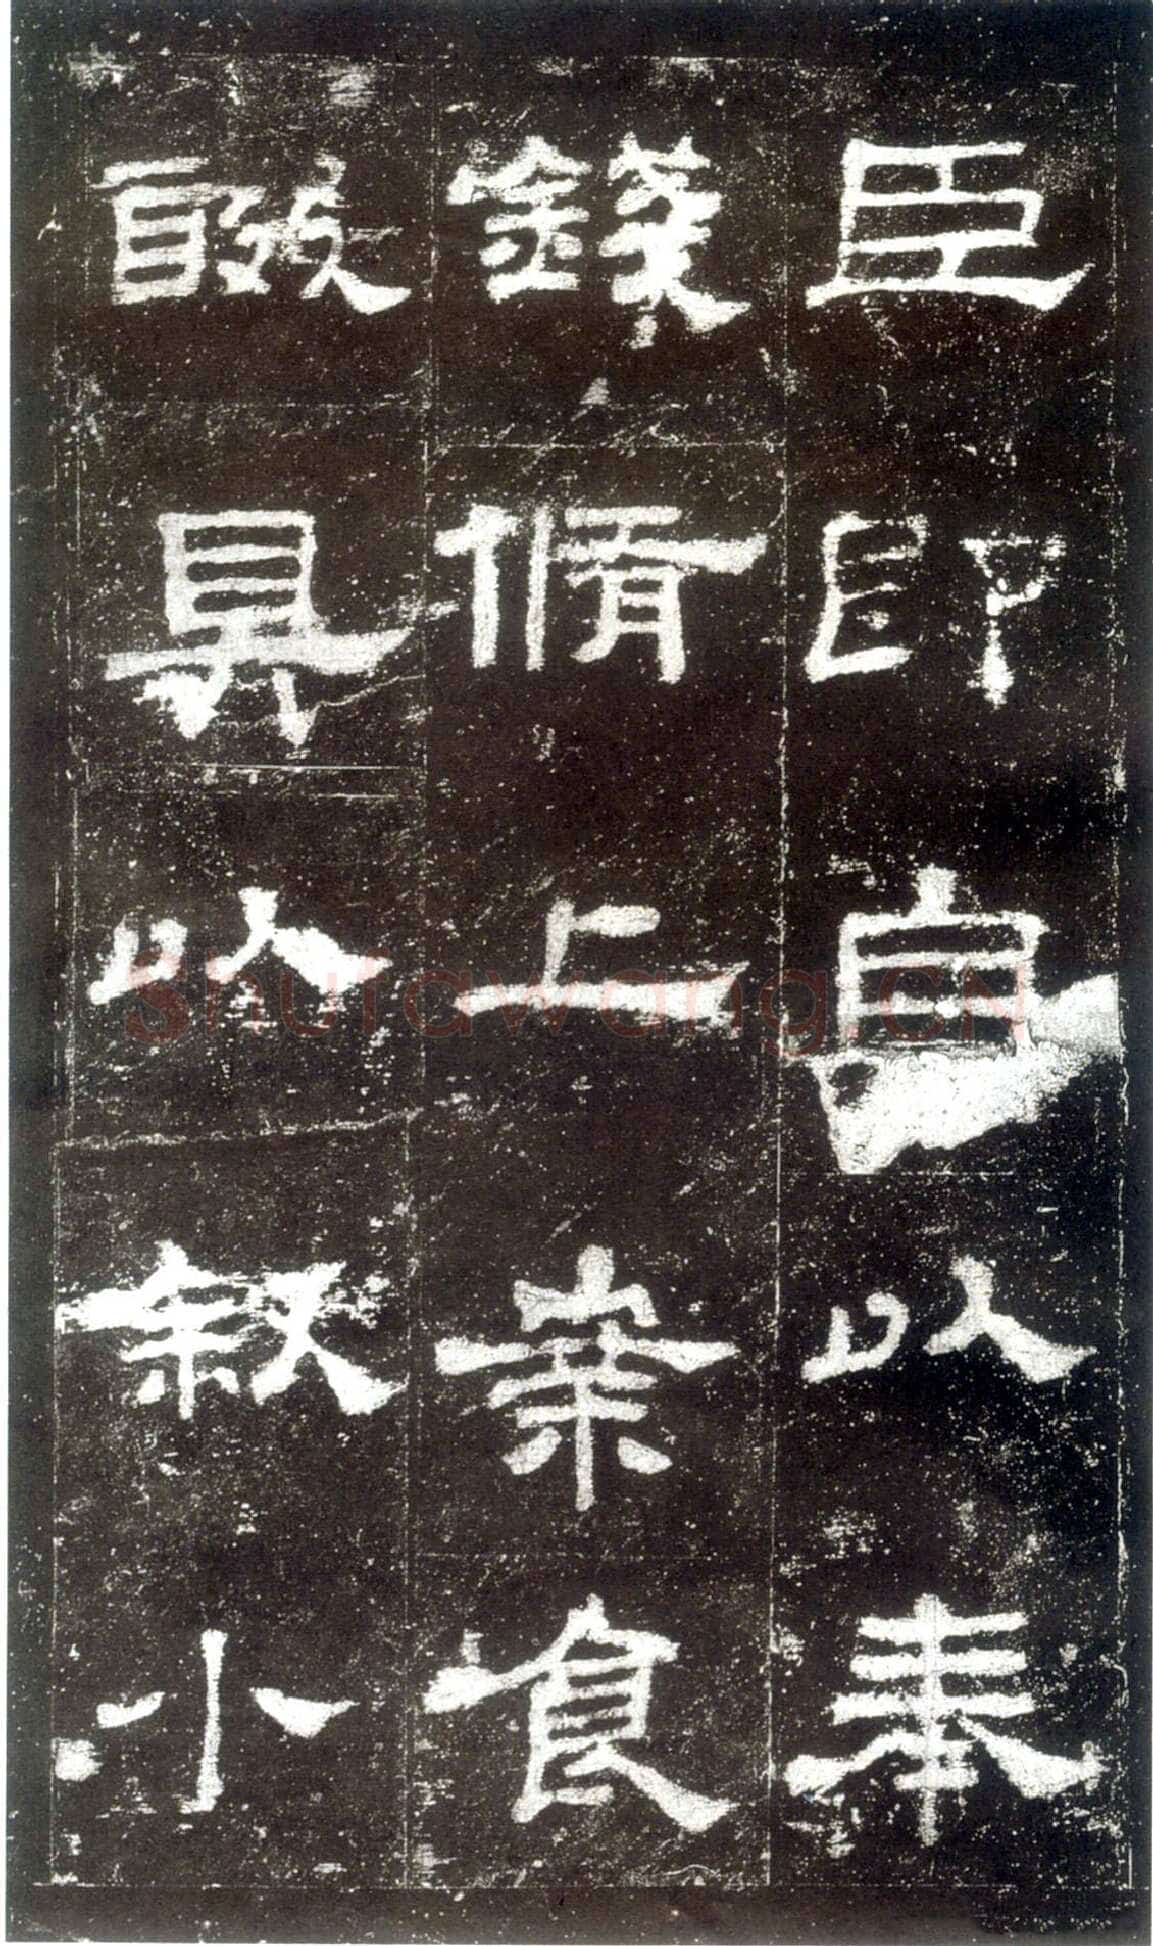 臣即自以奉
錢脩上案食
醊具以叙小
Shufawang.CN